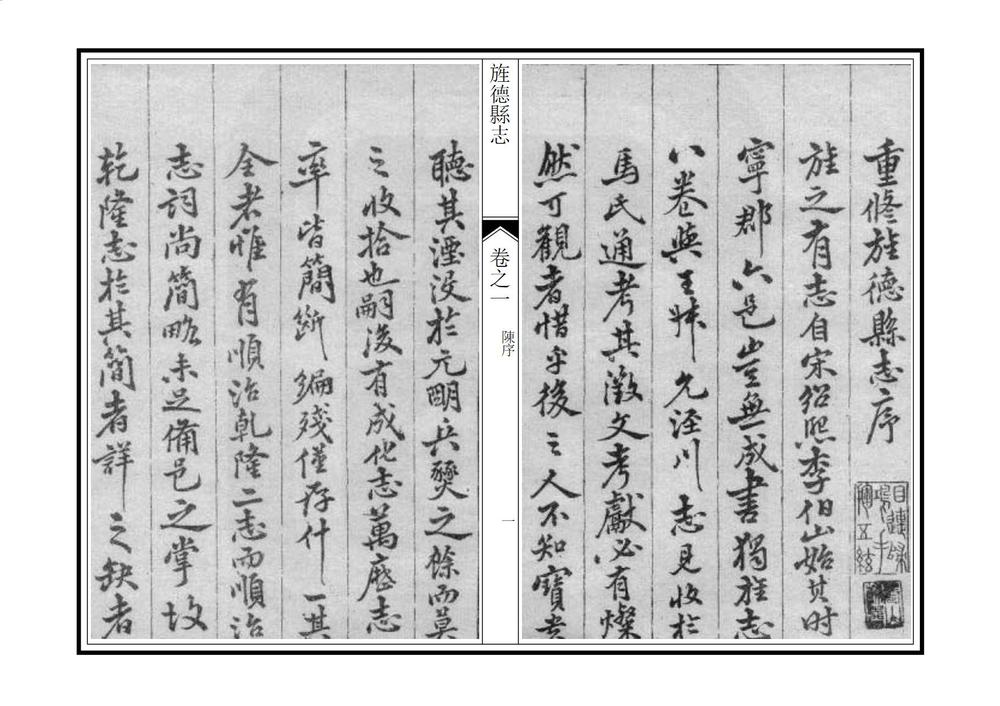 重修旌德縣志序
旌之有志自宋紹熙李伯山始其時
寧郡六邑豈無成書獨旌志
八卷與王棶允涇川志見收於
馬氏通考其徵文考獻必有燦
然可觀者惜乎後之人不知寶貴
旌德縣志
卷之一
陳序
一
聽其湮沒於元明兵燹之餘而莫
之收拾也嗣後有成化志萬歷志
率皆簡斷編殘僅存什一其
全者惟有順治乾隆二志而順治
志詞尚簡略未足備邑之掌故
乾隆志於其簡者詳之缺者